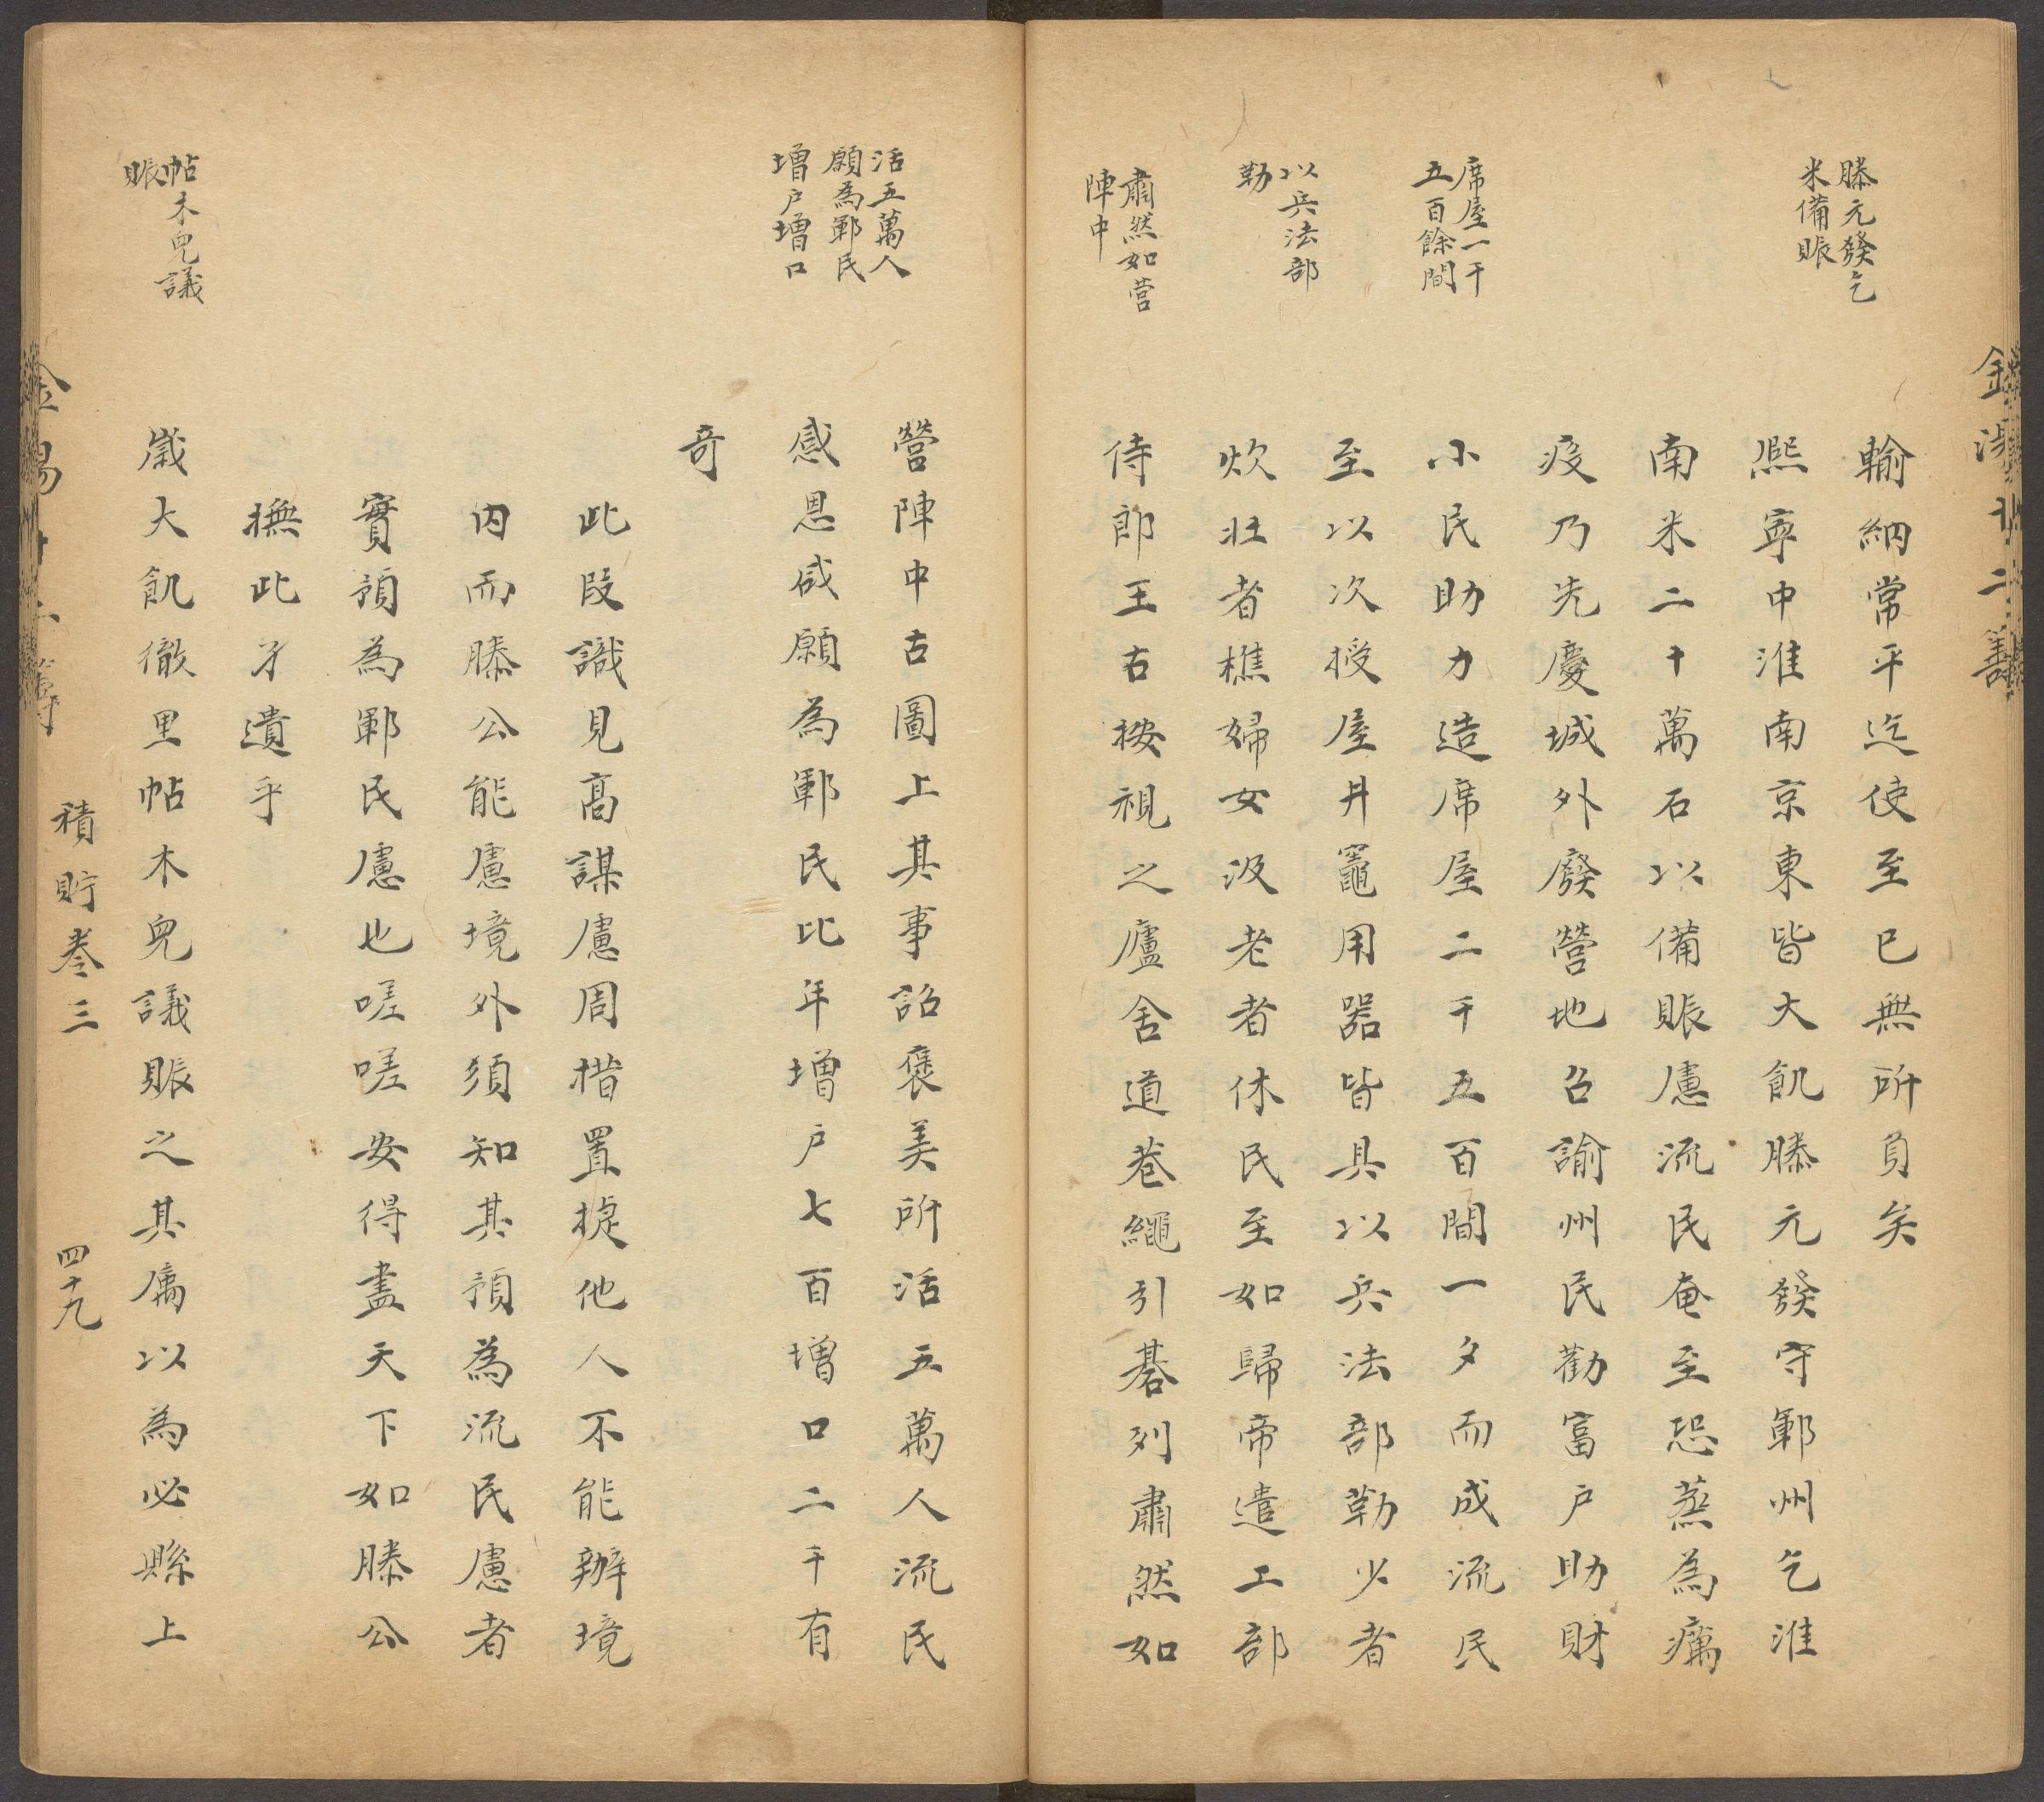 滕元發乞
米備賑
席屋一千
五百餘間
以兵法部
勒
肅然如营
陣中
輸納常平迄使至已無所負矣
熈寧中淮南京東皆大飢滕元發守鄆州乞淮
南米二十萬石以備賑慮流民奄至恐蒸為癘
疫乃先慶城外廢營地召諭州民勸富戶助財
小民助力造席屋二千五百間一夕而成流民
至以次授屋井竈用器皆具以兵法部勒少者
炊壯者樵婦女汲老者休民至如歸帝遣工部
侍郎王古按視之廬舍道巷繩引碁列肅然如
活五萬人
願為鄆民
增戶增口
營陣中古圖上其事詔褒美所活五萬人流民
感恩咸願為鄆民比年增戶七百增口二千有
奇
此段識見高謀慮周措置捷他人不能辦境
内而滕公能慮境外須知其預為流民慮者
實預為鄆民慮也嗟嗟安得盡天下如滕公
撫此孑遺乎
帖木兒議
賑
歲大飢徹里帖木兒議賑之其屬以為必縣上
積貯卷三
四十九